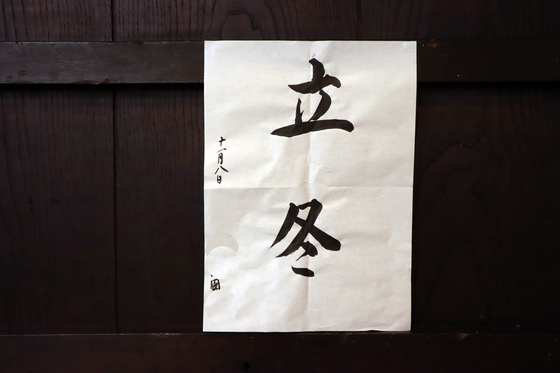 立冬
十一月八日